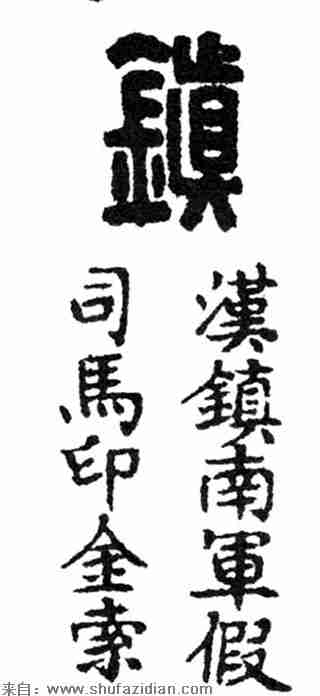 鎮
漢鎮南軍假
司馬印金索
来自：www.shufazidian.com